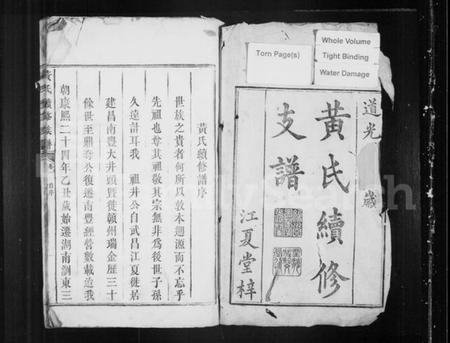 Torn Page(s)
Whole Volume
Tight Binding
Water Damage
道光 歲
黃氏續修
支譜
江夏堂梓
黃氏續修譜序
世族之貴者何所以敦本追源而不忘乎
先祖也尊其祖敬其宗無非為後世子孫
久遠計耳我 祖井公自武昌江夏徙居
建昌南豐大井頭暨徙贛州瑞金歷三十
餘世至鼎公復遷南豐經營數載迨我
朝康熙二十四年乙丑歲始遷湖南瀏東三
黃氏續修族譜